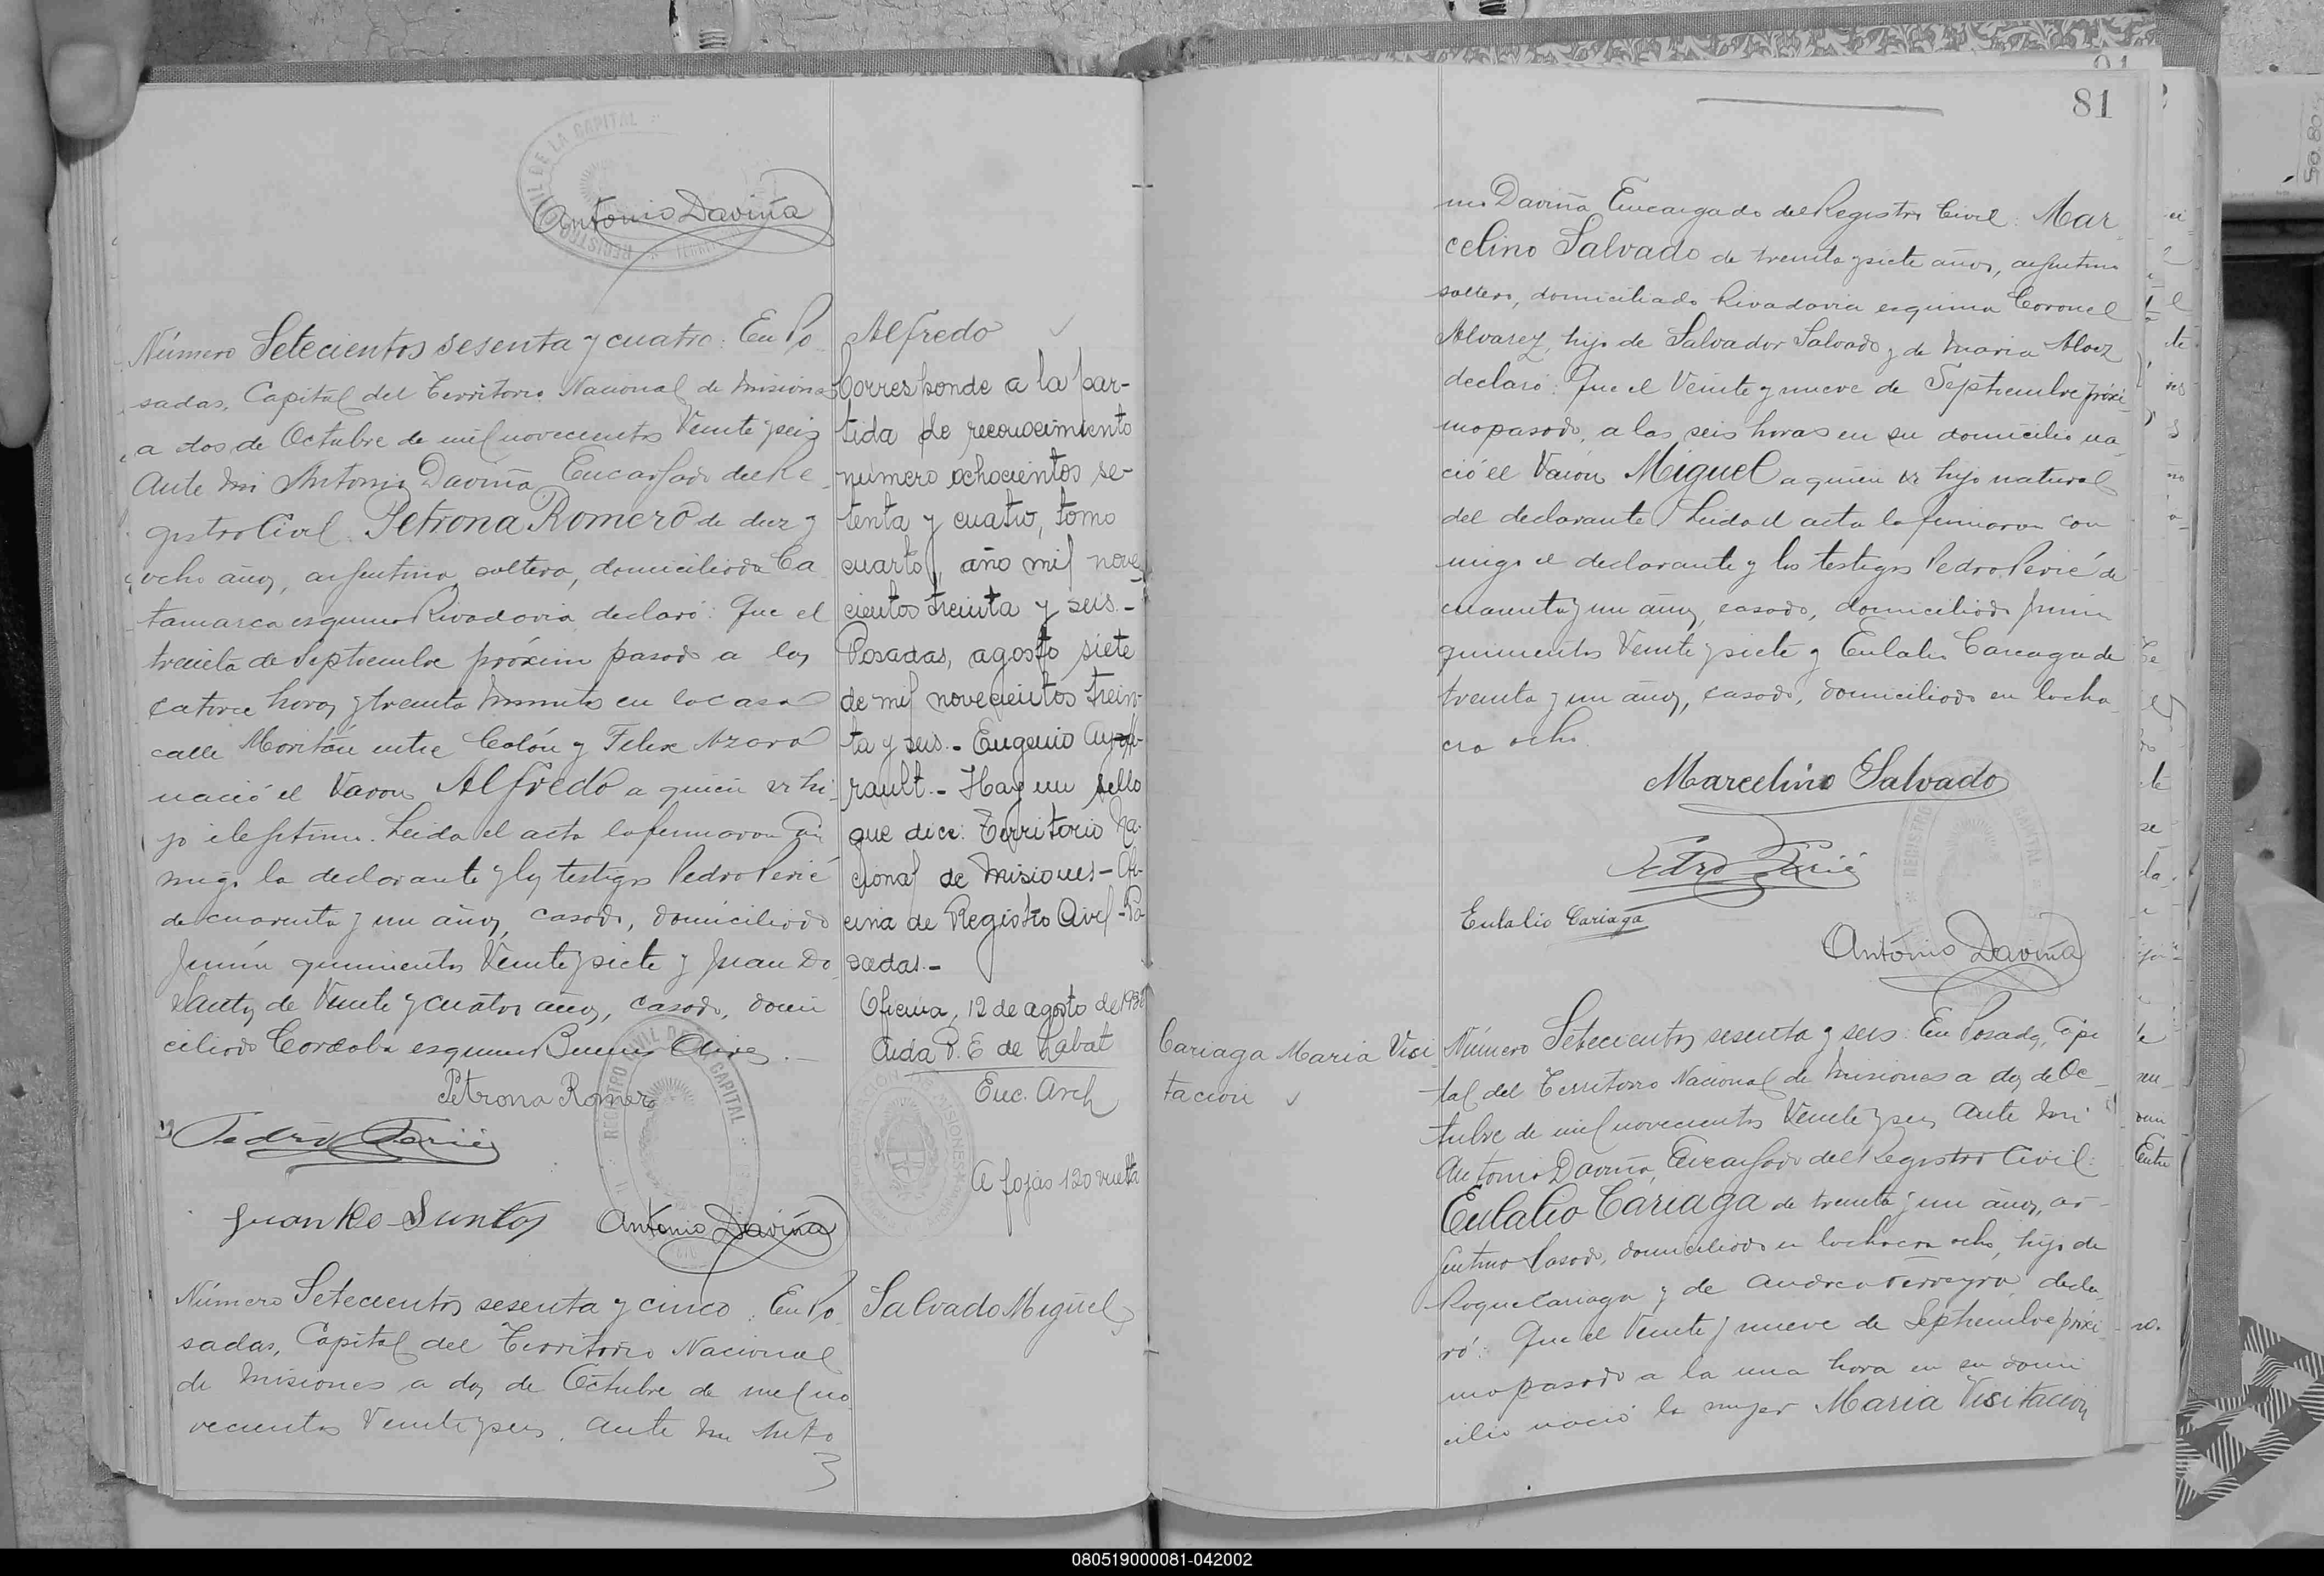 Antonio Daviña
Número Setecientos sesenta y cuatro: En Po
sadas, Capital del Territorio Nacional de Misiones
a dos de Octubre de mil novecientos Veinte y seis
Ante mi Antonio Daviña Encargado del Re
gistro Civil. Petrona Romero de diez y
ocho años, argentina soltera, domiciliada Ca
tamarca esquina Rivadavia declaró: Que el
treinta de Septiembre próximo pasado a las
catorce horas y treinta minutos en la casa
calle Moritán entre Colón y Felix Azara
nació el Varon Alfredo a quien es hi
jo ilegitimo. Leida el acta la firmaron con
migo la declarante y los testigos Pedro Perié
de cuarenta y un años, casado, domiciliado
Junín quinientos Veinte y siete y Juan Do
Santos de Veinte y cuatro años, casado, domi
ciliado Cordoba esquina Buenos Aires.
Petrona Romero
Pedro Perié
Juan Do Santos
Antonio Daviña
REGISTRO CIVIL DE LA CAPITAL
Número Setecientos sesenta y cinco. En Po
sadas, Capital del Territorio Nacional
de Misiones a dos de Octubre de mil no
vecientos Veinte y seis. Ante mi Anto
Alfredo
Corresponde a la par-
tida de reconocimiento
número ochocientos se-
tenta y cuatro, tomo
cuarto, año mil nove-
cientos treinta y seis.-
Posadas, agosto siete
de mil novecientos trein-
ta y seis.- Eugenio Ay
rault.- Hay un sello
que dice: Territorio Na-
cional de Misiones- Ofi-
cina de Registro Civil -Po
sadas.-
Oficina, 12 de agosto de 1936
Aida P. E de Labat
Enc. Arch
A fojas 120 vuelta
Salvado Miguel
81
nio Daviña Encargado del Registro Civil: Mar
celino Salvado de treinta y siete años, argentino
soltero, domiciliado Rivadavia esquina Coronel
Alvarez, hijo de Salvador Salvado y de Maria
declaró: Que el Veinte y nueve de Septiembre próxi
mo pasado, a las seis horas en su domicilio na
ció el Varón Miguel a quien es hijo natural
del declarante. Leida el acta la firmaron con
migo el declarante y los testigos Pedro Perié de
cuarenta y un años, casado, domiciliado Junin
quinientos Veinte y siete y Eulalio Cariaga de
treinta y un años, casado, domiciliado en la cha
cra ocho.
Marcelino Salvado
Pedro Perié
Eulalio Cariaga
Antonio Daviña
Cariaga Maria Visi
tacion
Número Setecientos sesenta y seis: En Posadas, Capi
tal del Territorio Nacional de Misiones a dos de Oc
tubre de mil novecientos Veinte y seis, Ante mi
Antonio Daviña, Encargado del Registro Civil:
Eulalio Cariaga de treinta y un años, ar
gentino casado, domiciliado en la chacra ocho, hijo de
Roque Cariaga y de Andrea Ferreyra, decla
ró: Que el Veinte y nueve de Septiembre próxi
mo pasado a la una hora en su domi
cilio nació la mujer Maria Visitacion
080519000081-042002